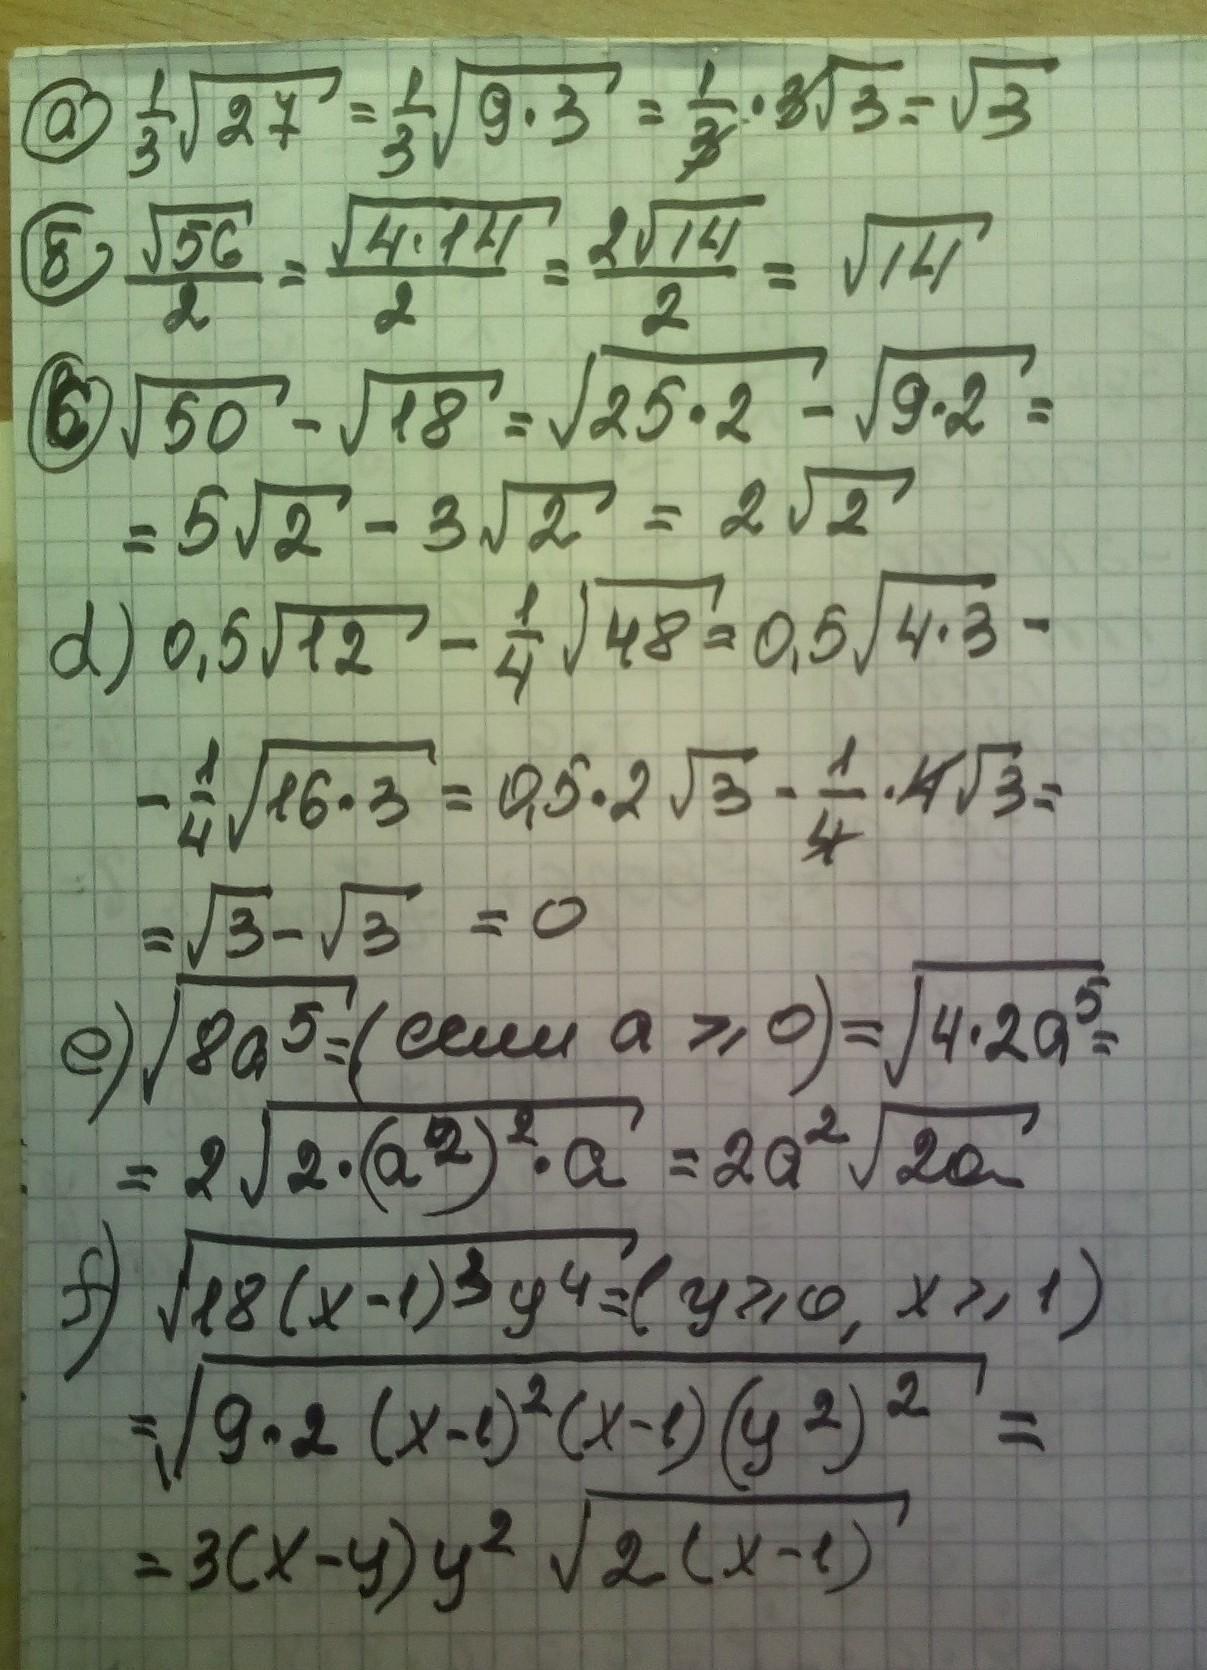 а) 1/3 √27 = 1/3 √(9·3) = 1/3 · 3√3 = √3
б) √56/2 = √(4·14)/2 = 2√14/2 = √14
в) √50 - √18 = √(25·2) - √(9·2) =
= 5√2 - 3√2 = 2√2
d) 0,5√12 - 1/4 √48 = 0,5√(4·3) -
- 1/4 √(16·3) = 0,5·2√3 - 1/4 · 4√3 =
= √3 - √3 = 0
e) √(8a⁵) = (если a ⩾ 0) = √(4·2a⁵) =
= 2√(2·(a²)²·a) = 2a²√(2a)
f) √(18(x-1)³y⁴) = (y ⩾ 0, x ⩾ 1)
= √(9·2(x-1)²(x-1)(y²)²) =
= 3(x-y)y² √(2(x-1))